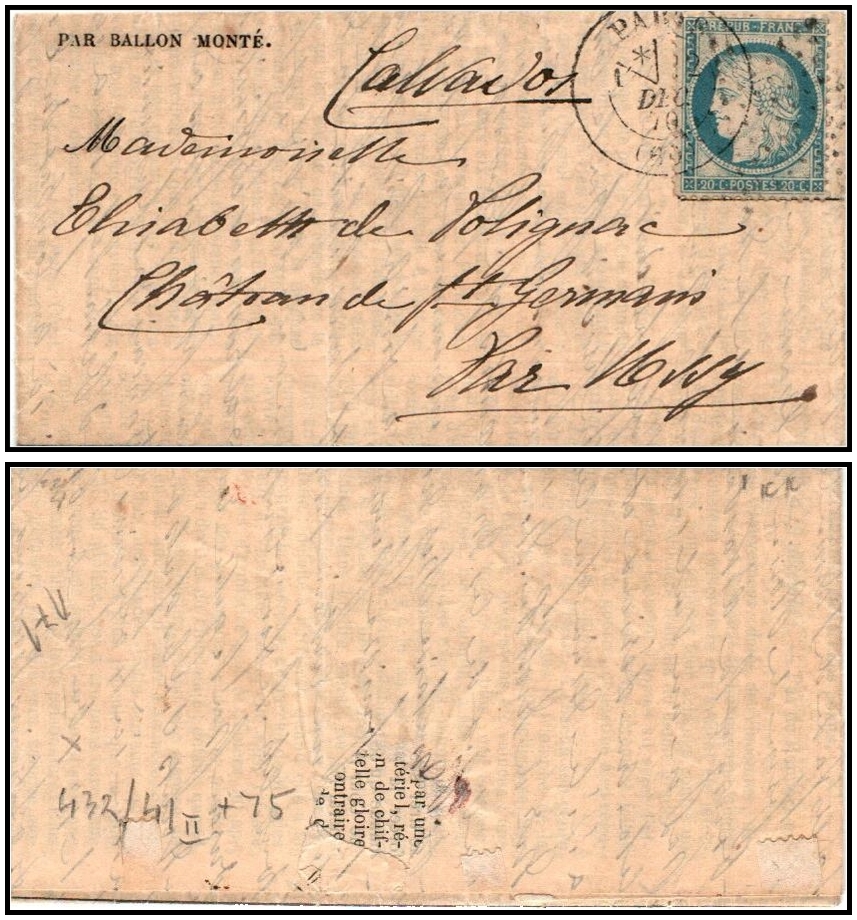 PAR BALLON MONTÉ.
Calvados
PARIS
DEC
70
REPUB·FRANC
20·C·POSTES·20·C·
Mademoiselle
Elisabeth de Polignac
Château de St Germain
Par Ussy
432/41 II + 75
par une
tériel, ré-
n de chif-
telle gloire
ontraire